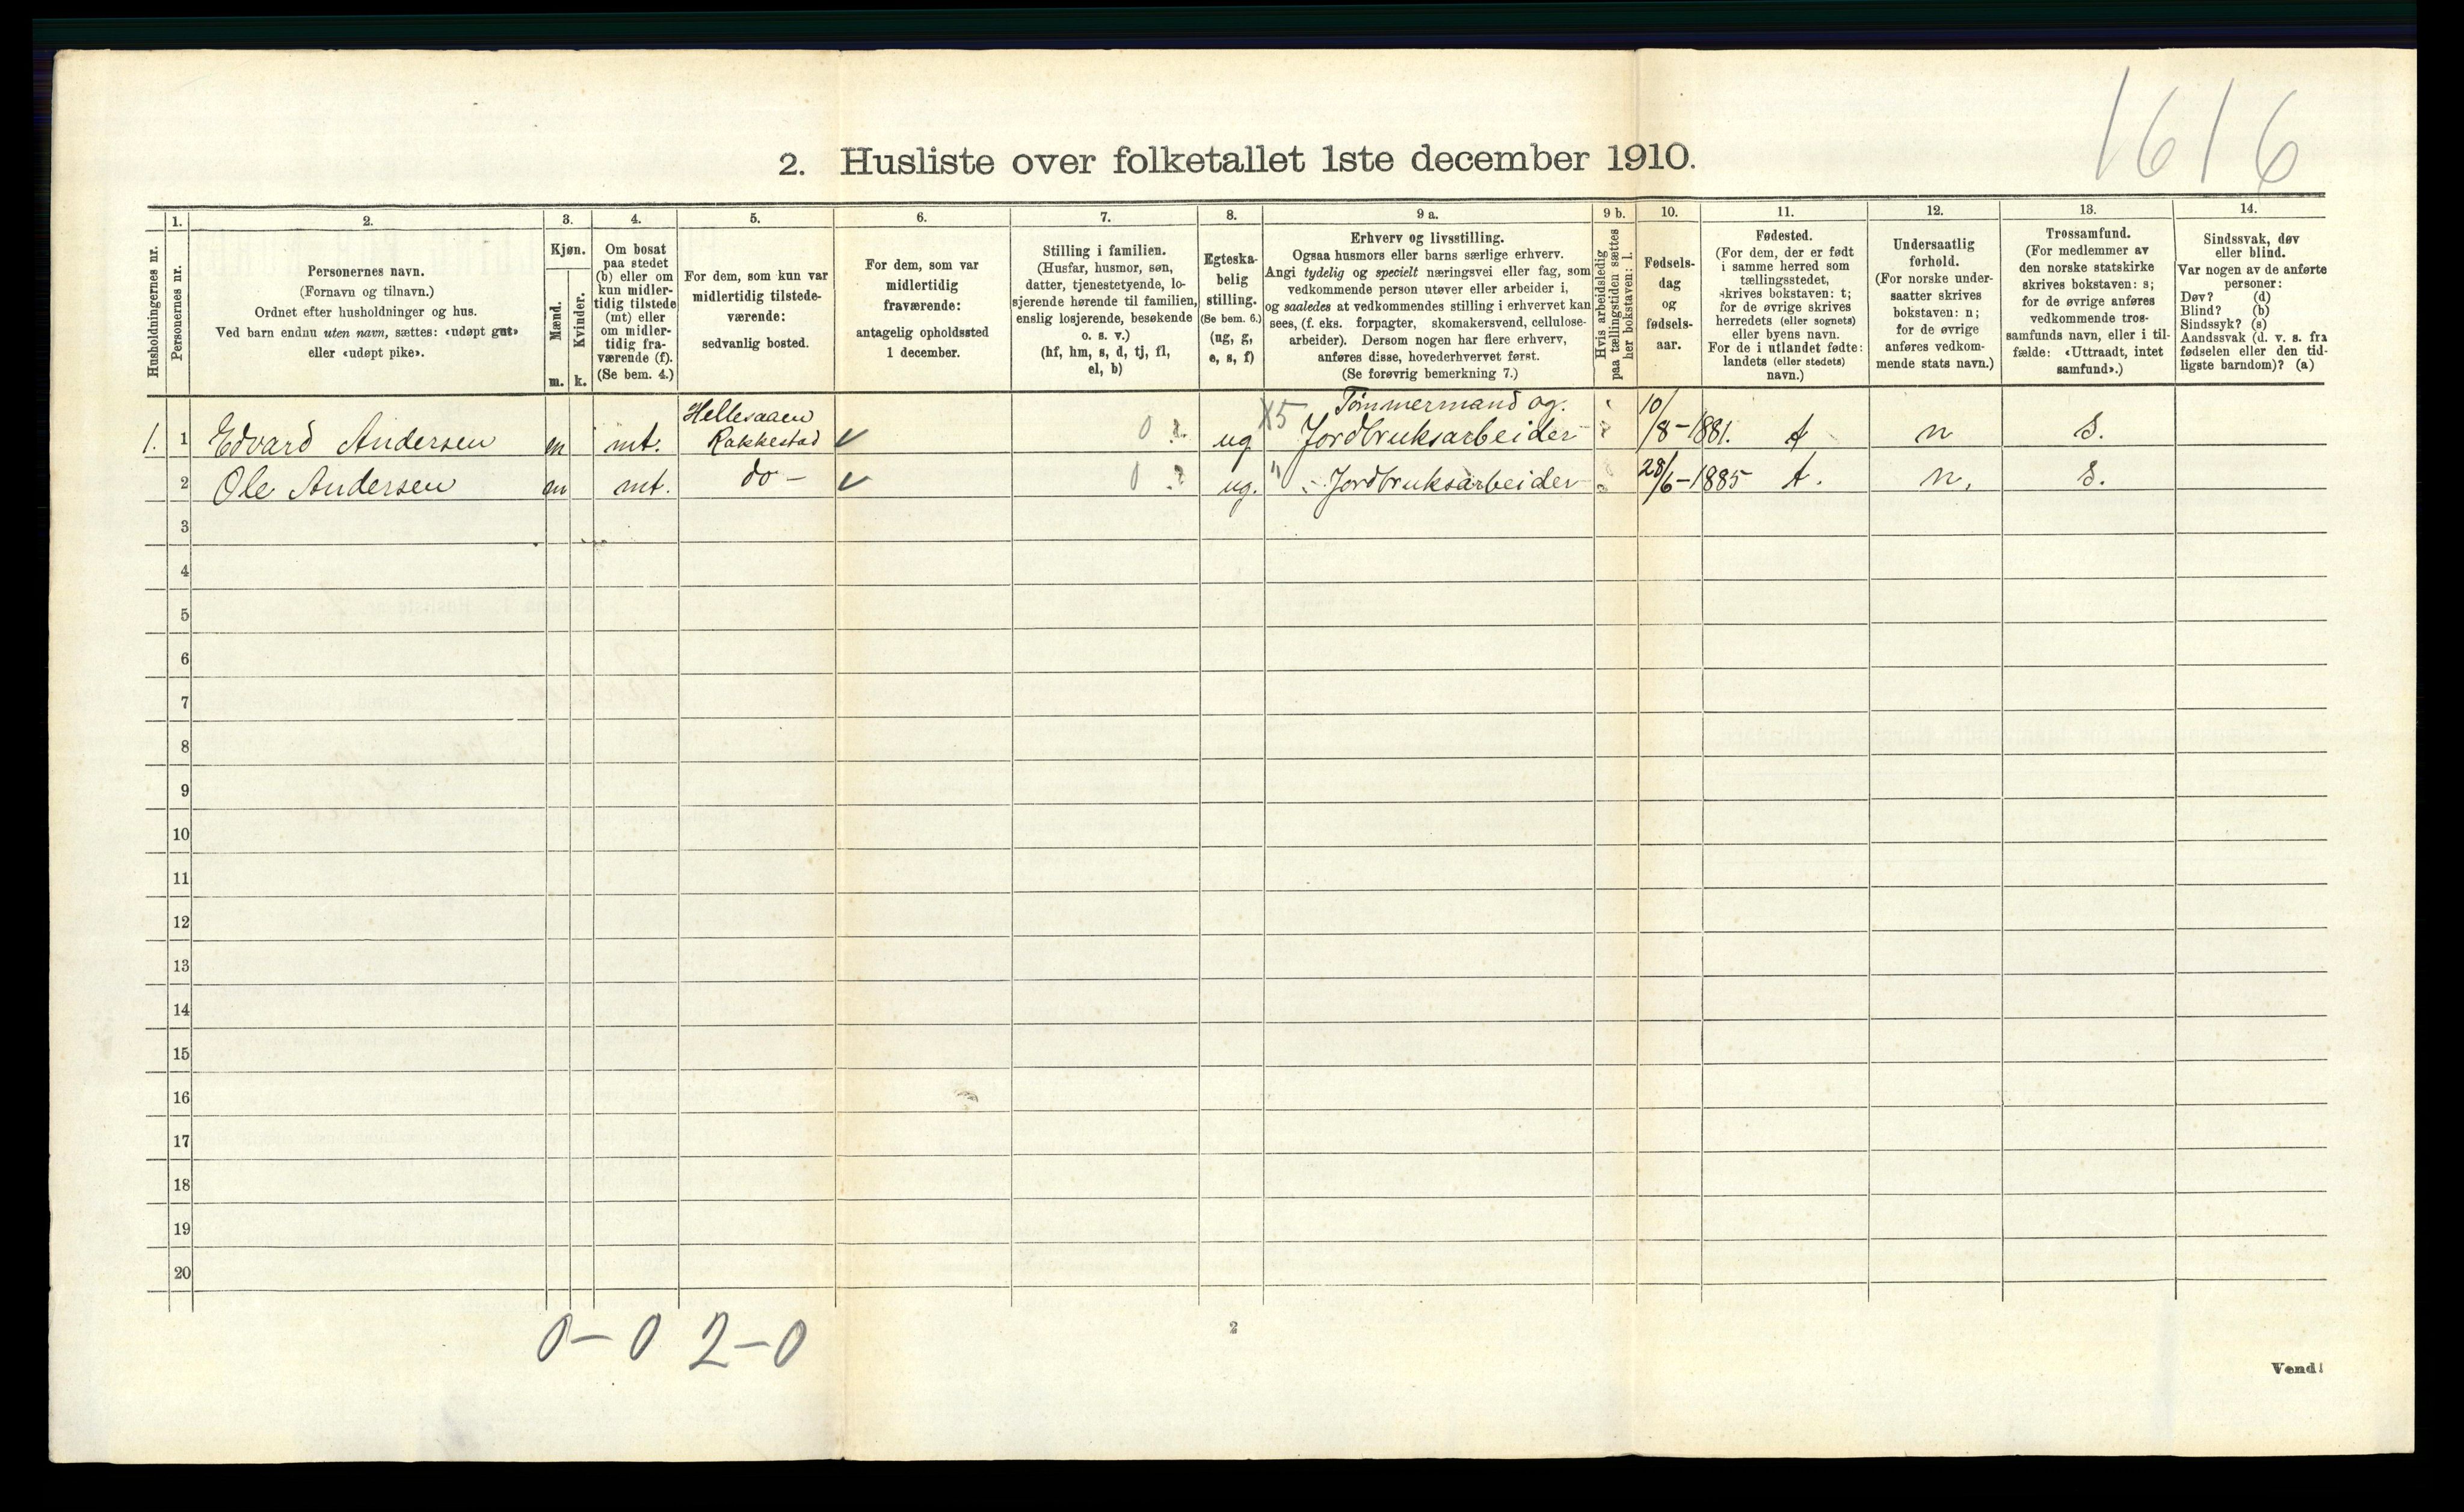 1616
2. Husliste over folketallet 1ste december 1910.
Husholdningernes nr.
1.
Personernes nr.
2.
Personernes navn.
(Fornavn og tilnavn.)
Ordnet efter husholdninger og hus.
Ved barn endnu uten navn, sættes: «udøpt gut»
eller «udøpt pike».
3.
Kjøn.
Mænd.
m.
Kvinder.
k.
4.
Om bosat
paa stedet
(b) eller om
kun midler-
tidig tilstede
(mt) eller
om midler-
tidig fra-
værende (f).
(Se bem. 4.)
5.
For dem, som kun var
midlertidig tilstede-
værende:
sedvanlig bosted.
6.
For dem, som var
midlertidig
fraværende:
antagelig opholdssted
1 december.
7.
Stilling i familien.
(Husfar, husmor, søn,
datter, tjenestetyende, lo-
sjerende hørende til familien,
enslig losjerende, besøkende
o. s. v.)
(hf, hm, s, d, tj, fl,
el, b)
8.
Egteska-
belig
stilling.
(Se bem. 6.)
(ug, g,
e, s, f)
9 a.
Erhverv og livsstilling.
Ogsaa husmors eller barns særlige erhverv.
Angi tydelig og specielt næringsvei eller fag, som
vedkommende person utøver eller arbeider i,
og saaledes at vedkommendes stilling i erhvervet kan
sees, (f. eks. forpagter, skomakersvend, cellulose-
arbeider). Dersom nogen har flere erhverv,
anføres disse, hovederhvervet først.
(Se forøvrig bemerkning 7.)
9 b.
Hvis arbeidsledig
paa tællingstiden sættes
her bokstaven: l.
10.
Fødsels-
dag
og
fødsels-
aar.
11.
Fødested.
(For dem, der er født
i samme herred som
tællingsstedet,
skrives bokstaven: t;
for de øvrige skrives
herredets (eller sognets)
eller byens navn.
For de i utlandet fødte:
landets (eller stedets)
navn.)
12.
Undersaatlig
forhold.
(For norske under-
saatter skrives
bokstaven: n;
for de øvrige
anføres vedkom-
mende stats navn.)
13.
Trossamfund.
(For medlemmer av
den norske statskirke
skrives bokstaven: s;
for de øvrige anføres
vedkommende tros-
samfunds navn, eller i til-
fælde: «Uttraadt, intet
samfund».)
14.
Sindssvak, døv
eller blind.
Var nogen av de anførte
personer:
Døv? (d)
Blind? (b)
Sindssyk? (s)
Aandssvak (d. v. s. fra
fødselen eller den tid-
ligste barndom)? (a)
Hellesaaen Tømmermand og.
1. 1 Edvard Andersen m mt. Rakkestad 0 ug X5 Jordbruksarbeider 10/8-1881. t n s.
2 Ole Andersen m mt. do - 0 ug. " Jordbruksarbeider 28/6-1885 t. n. s.
3
4
5
6
7
8
9
10
11
12
13
14
15
16
17
18
19
20
0-0 2-0
2
Vend!